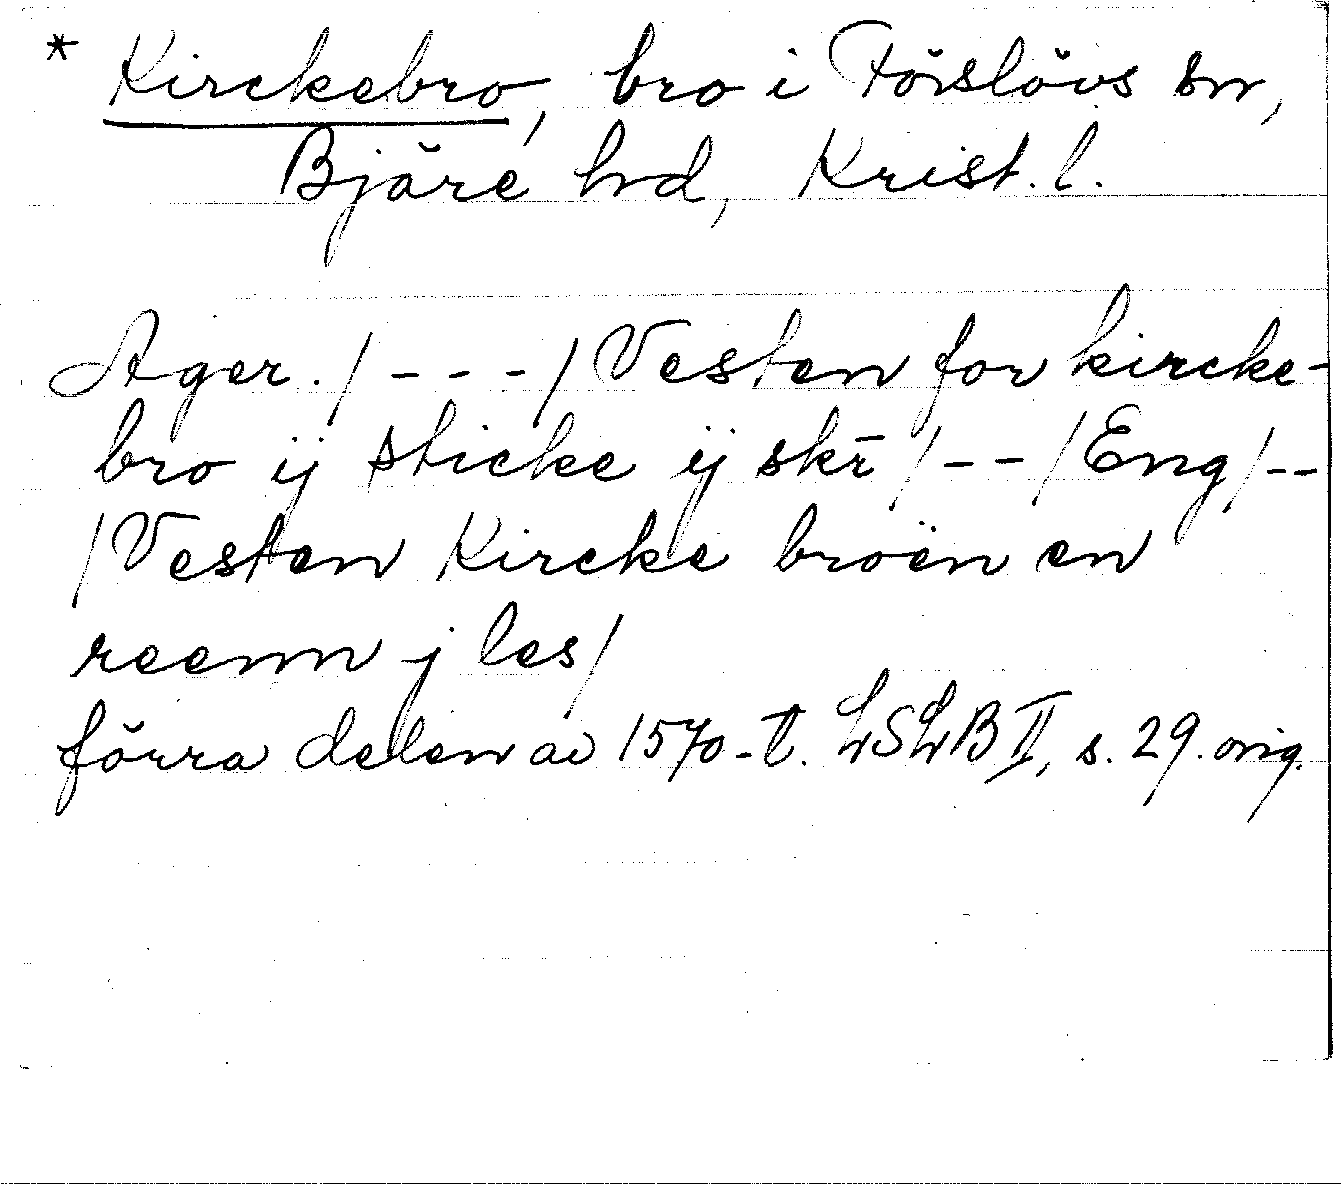 * Kirckebro, bro i Förslövs sn,
Bjäre hrd, Krist. l.
Ager. / - - - / Vesten for kircke-
bro ij sticke ij skr̄ / - - / Eng / - -
/ Vesten Kircke broën en
reenn j les /
förra delen av 1570-t. LSLB II, s. 29. orig.